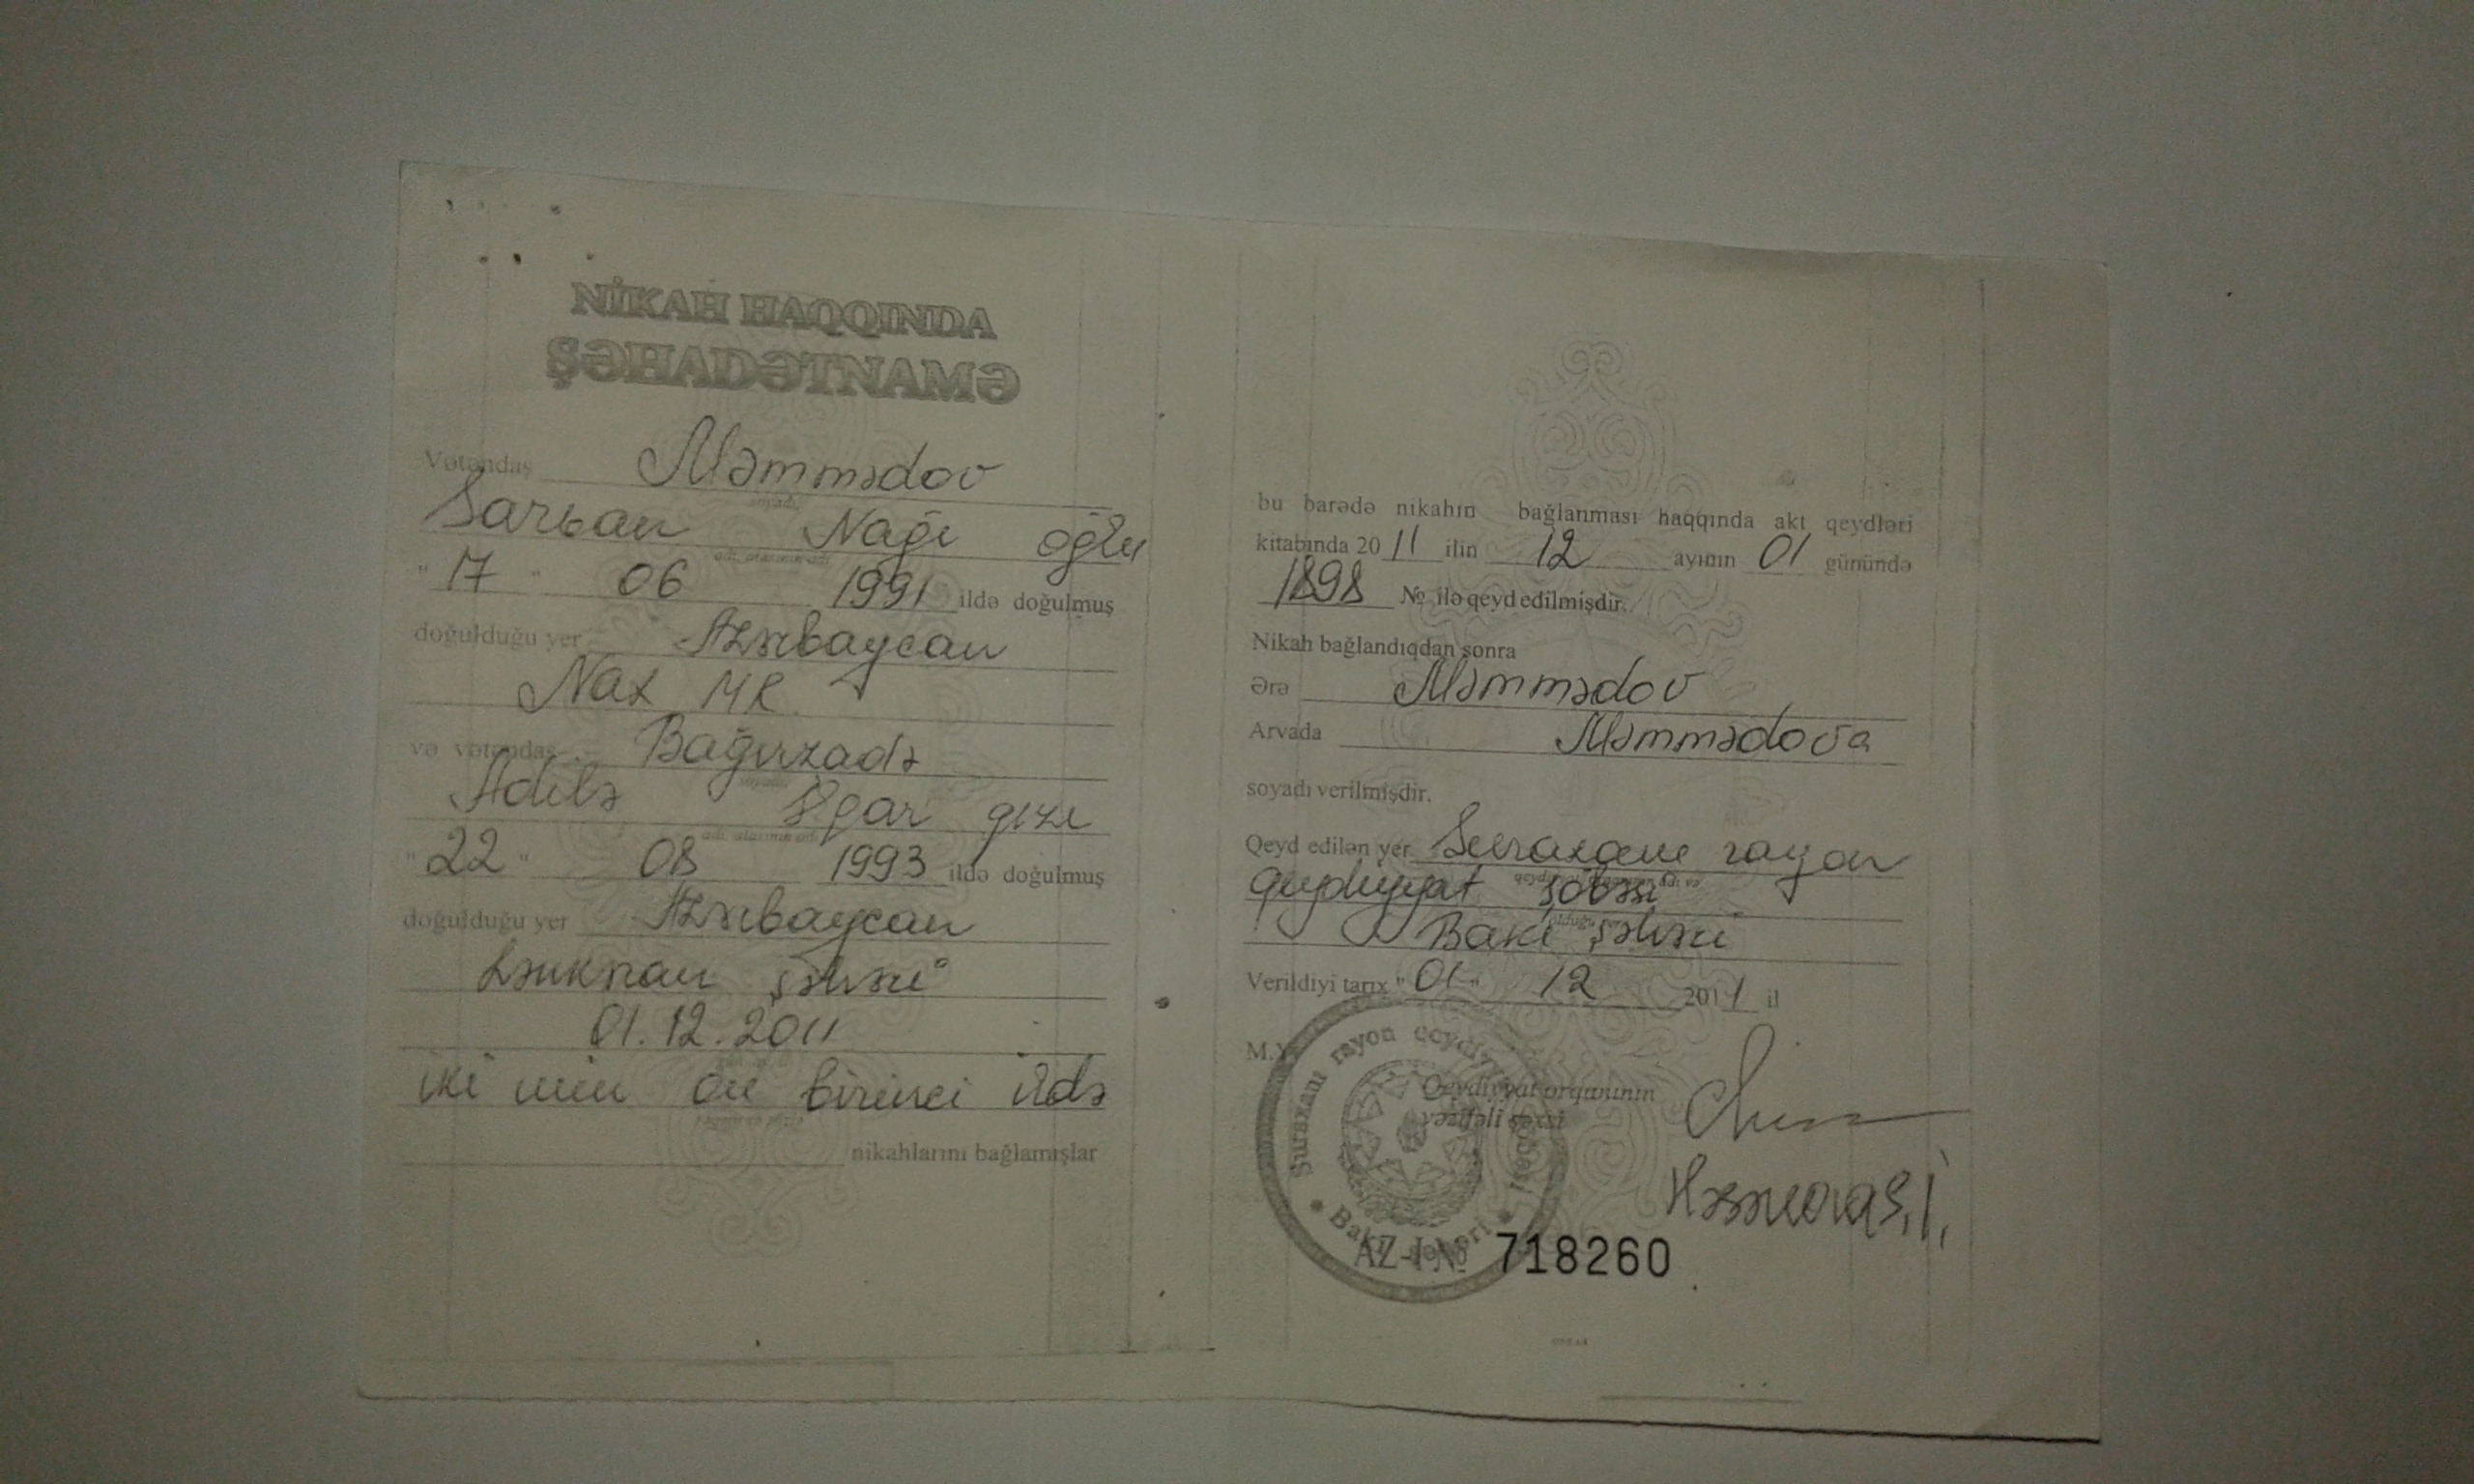 NİKAH HAQQINDA
ŞƏHADƏTNAMƏ
Vətəndaş Məmmədov
soyadı
Sarvan Nağı oğlu
adı, atasının adı
"17" 06 1991 ildə doğulmuş
doğulduğu yer Azərbaycan
Nax MR
və vətəndaş Bağırzadə
soyadı
Adilə Elgar qızı
adı, atasının adı
"22" 08 1993 ildə doğulmuş
doğulduğu yer Azərbaycan
Lənkəran şəhəri
01.12.2011
iki min on birinci ildə
nikahlarını bağlamışlar
bu barədə nikahın bağlanması haqqında akt qeydləri
kitabında 2011 ilin 12 ayının 01 günündə
1898 № ilə qeyd edilmişdir.
Nikah bağlandıqdan sonra
Ərə Məmmədov
Arvada Məmmədova
soyadı verilmişdir.
Qeyd edilən yer Suraxanı rayon
qeydiyyat şöbəsi
Bakı şəhəri
Verildiyi tarix "01" 12 2011 il
M.Y.
Qeydiyyat orqanının
vəzifəli şəxsi
Suraxanı rayon qeydiyyat şöbəsi
Bakı şəhəri
Həsənova S.İ.
AZ-I № 718260